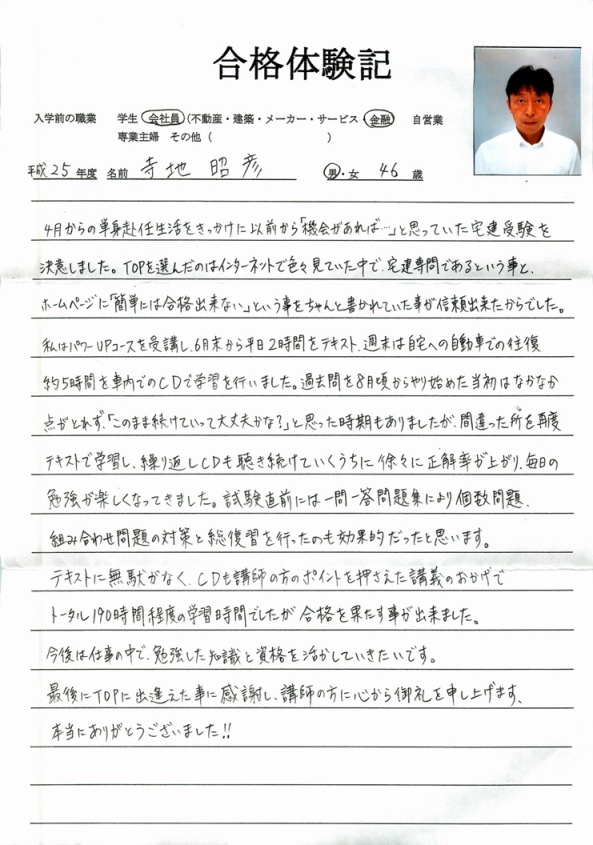 合格体験記
入学前の職業　学生　会社員（不動産・建築・メーカー・サービス・金融）　自営業
専業主婦　その他（　　　　　　　　　）
平成25年度　名前　寺地　昭彦　男・女　46歳
4月からの単身赴任生活をきっかけに以前から「機会があれば…」と思っていた宅建受験を
決意しました。TOPを選んだのはインターネットで色々見ていた中で、宅建専門であるという事と、
ホームページに「簡単には合格出来ない」という事をちゃんと書かれていた事が信頼出来たからでした。
私はパワーUPコースを受講し、6月末から平日2時間をテキスト、週末は自宅への自動車での往復
約5時間を車内でのCDで学習を行いました。過去問を8月頃からやり始めた当初はなかなか
点がとれず、「このまま続けていって大丈夫かな？」と思った時期もありましたが、間違った所を再度
テキストで学習し、繰り返しCDも聴き続けていくうちに徐々に正解率が上がり、毎日の
勉強が楽しくなってきました。試験直前には一問一答問題集により個数問題、
組み合わせ問題の対策と総復習を行ったのも効果的だったと思います。
テキストに無駄がなく、CDも講師の方のポイントを押さえた講義のおかげで
トータル190時間程度の学習時間でしたが合格を果たす事が出来ました。
今後は仕事の中で、勉強した知識と資格を活かしていきたいです。
最後にTOPに出逢えた事に感謝し、講師の方に心から御礼を申し上げます、
本当にありがとうございました!!